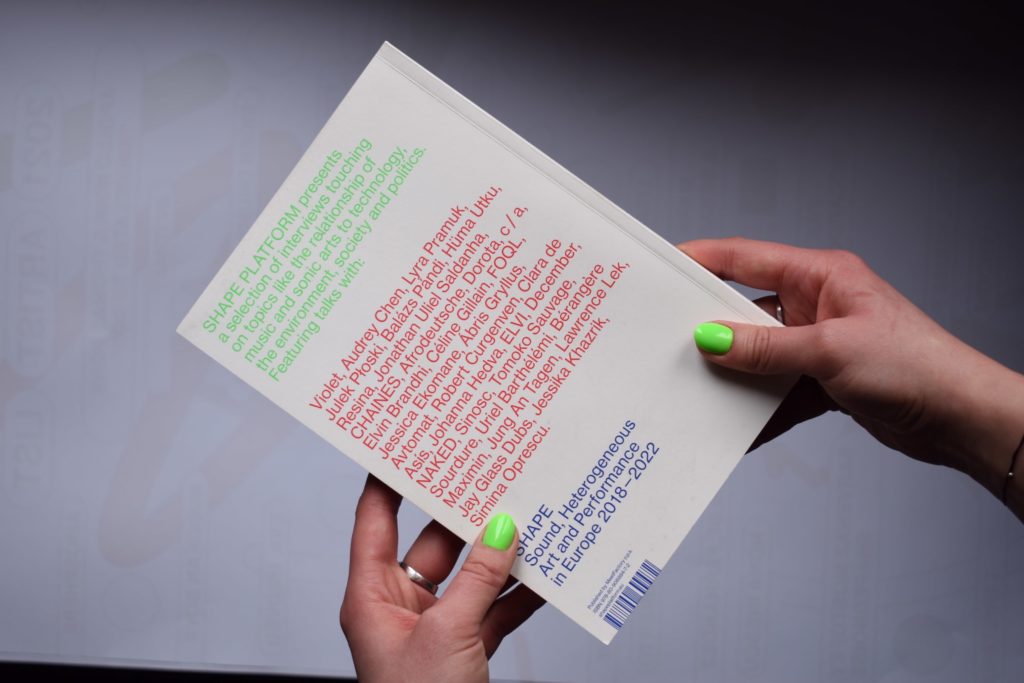 SHAPE PLATFORM presents
a selection of interviews touching
on topics like the relationship of
music and sonic arts to technology,
the environment, society and politics.
Featuring talks with:
Violet, Audrey Chen, Lyra Pramuk,
Julek Płoski, Balázs Pándi, Hüma Utku,
Resina, Jonathan Uliel Saldanha,
CHAINES, Afrodeutsche, Dorota, c / a,
Elvin Brandhi, Céline Gillain, FOQL,
Jessica Ekomane, Ábris Gryllus,
Avtomat, Robert Curgenven, Clara de
Asís, Johanna Hedva, ELVI, December,
NAKED, Simosc, Tomoko Sauvage,
Sourdure, Uriel Barthélémi, Berangère
Maximin, Jung An Tagen, Lawrence Lek,
Jay Glass Dubs, Jessika Khazrik,
Simina Oprescu,
SHAPE
Sound, Heterogeneous
Art and Performance
in Europe 2018–2022
Published by MeetFactory